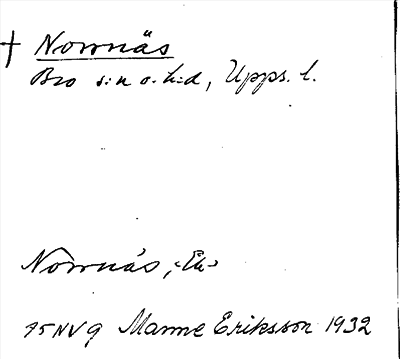 † Norrnäs
Bro s:n o. h:d, Upps. l.
Norrnäs,
75NV9 Manne Eriksson 1932